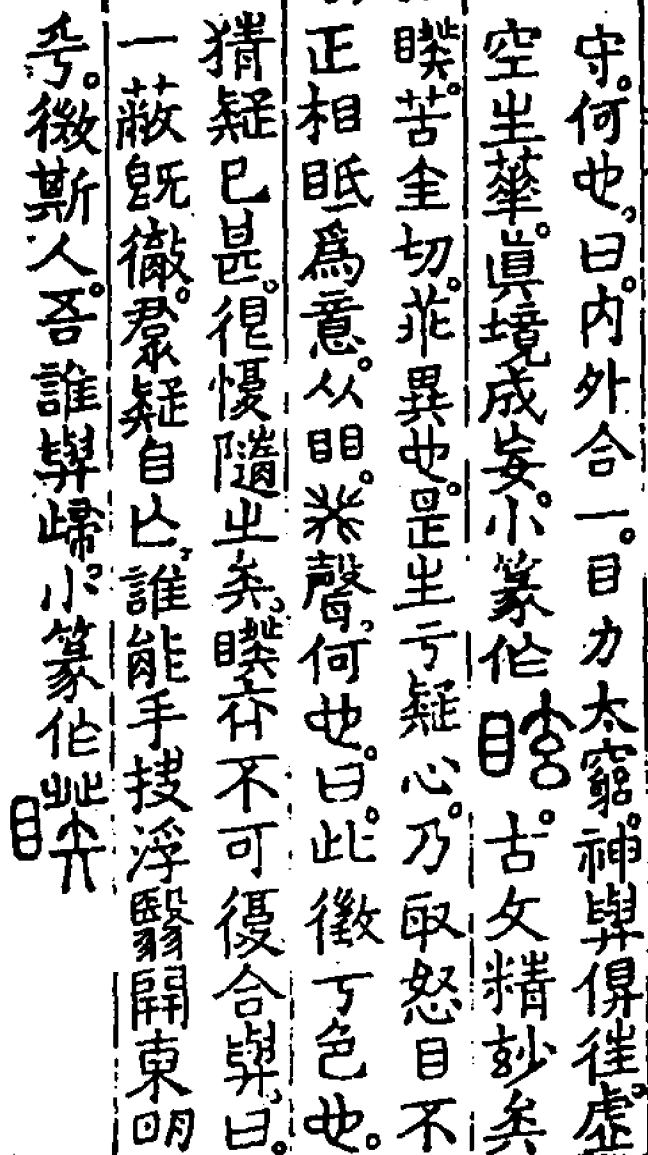 守。何也。曰。内外合一。目力太窮。神與俱往。虛
空生華。眞境成妄。小篆作 。古文精玅矣
睽。苦圭切。乖異也。是生亏疑心。乃取怒目不
正相眡爲意。从䀠。 聲。何也。曰。此徵亏色也。
猜疑已甚。很愎隨之矣。睽 不可復合與。曰。
一蔽旣徹。羣疑自亾。誰能手 浮翳開東明
乎。微斯人。吾誰與歸。小篆作睽